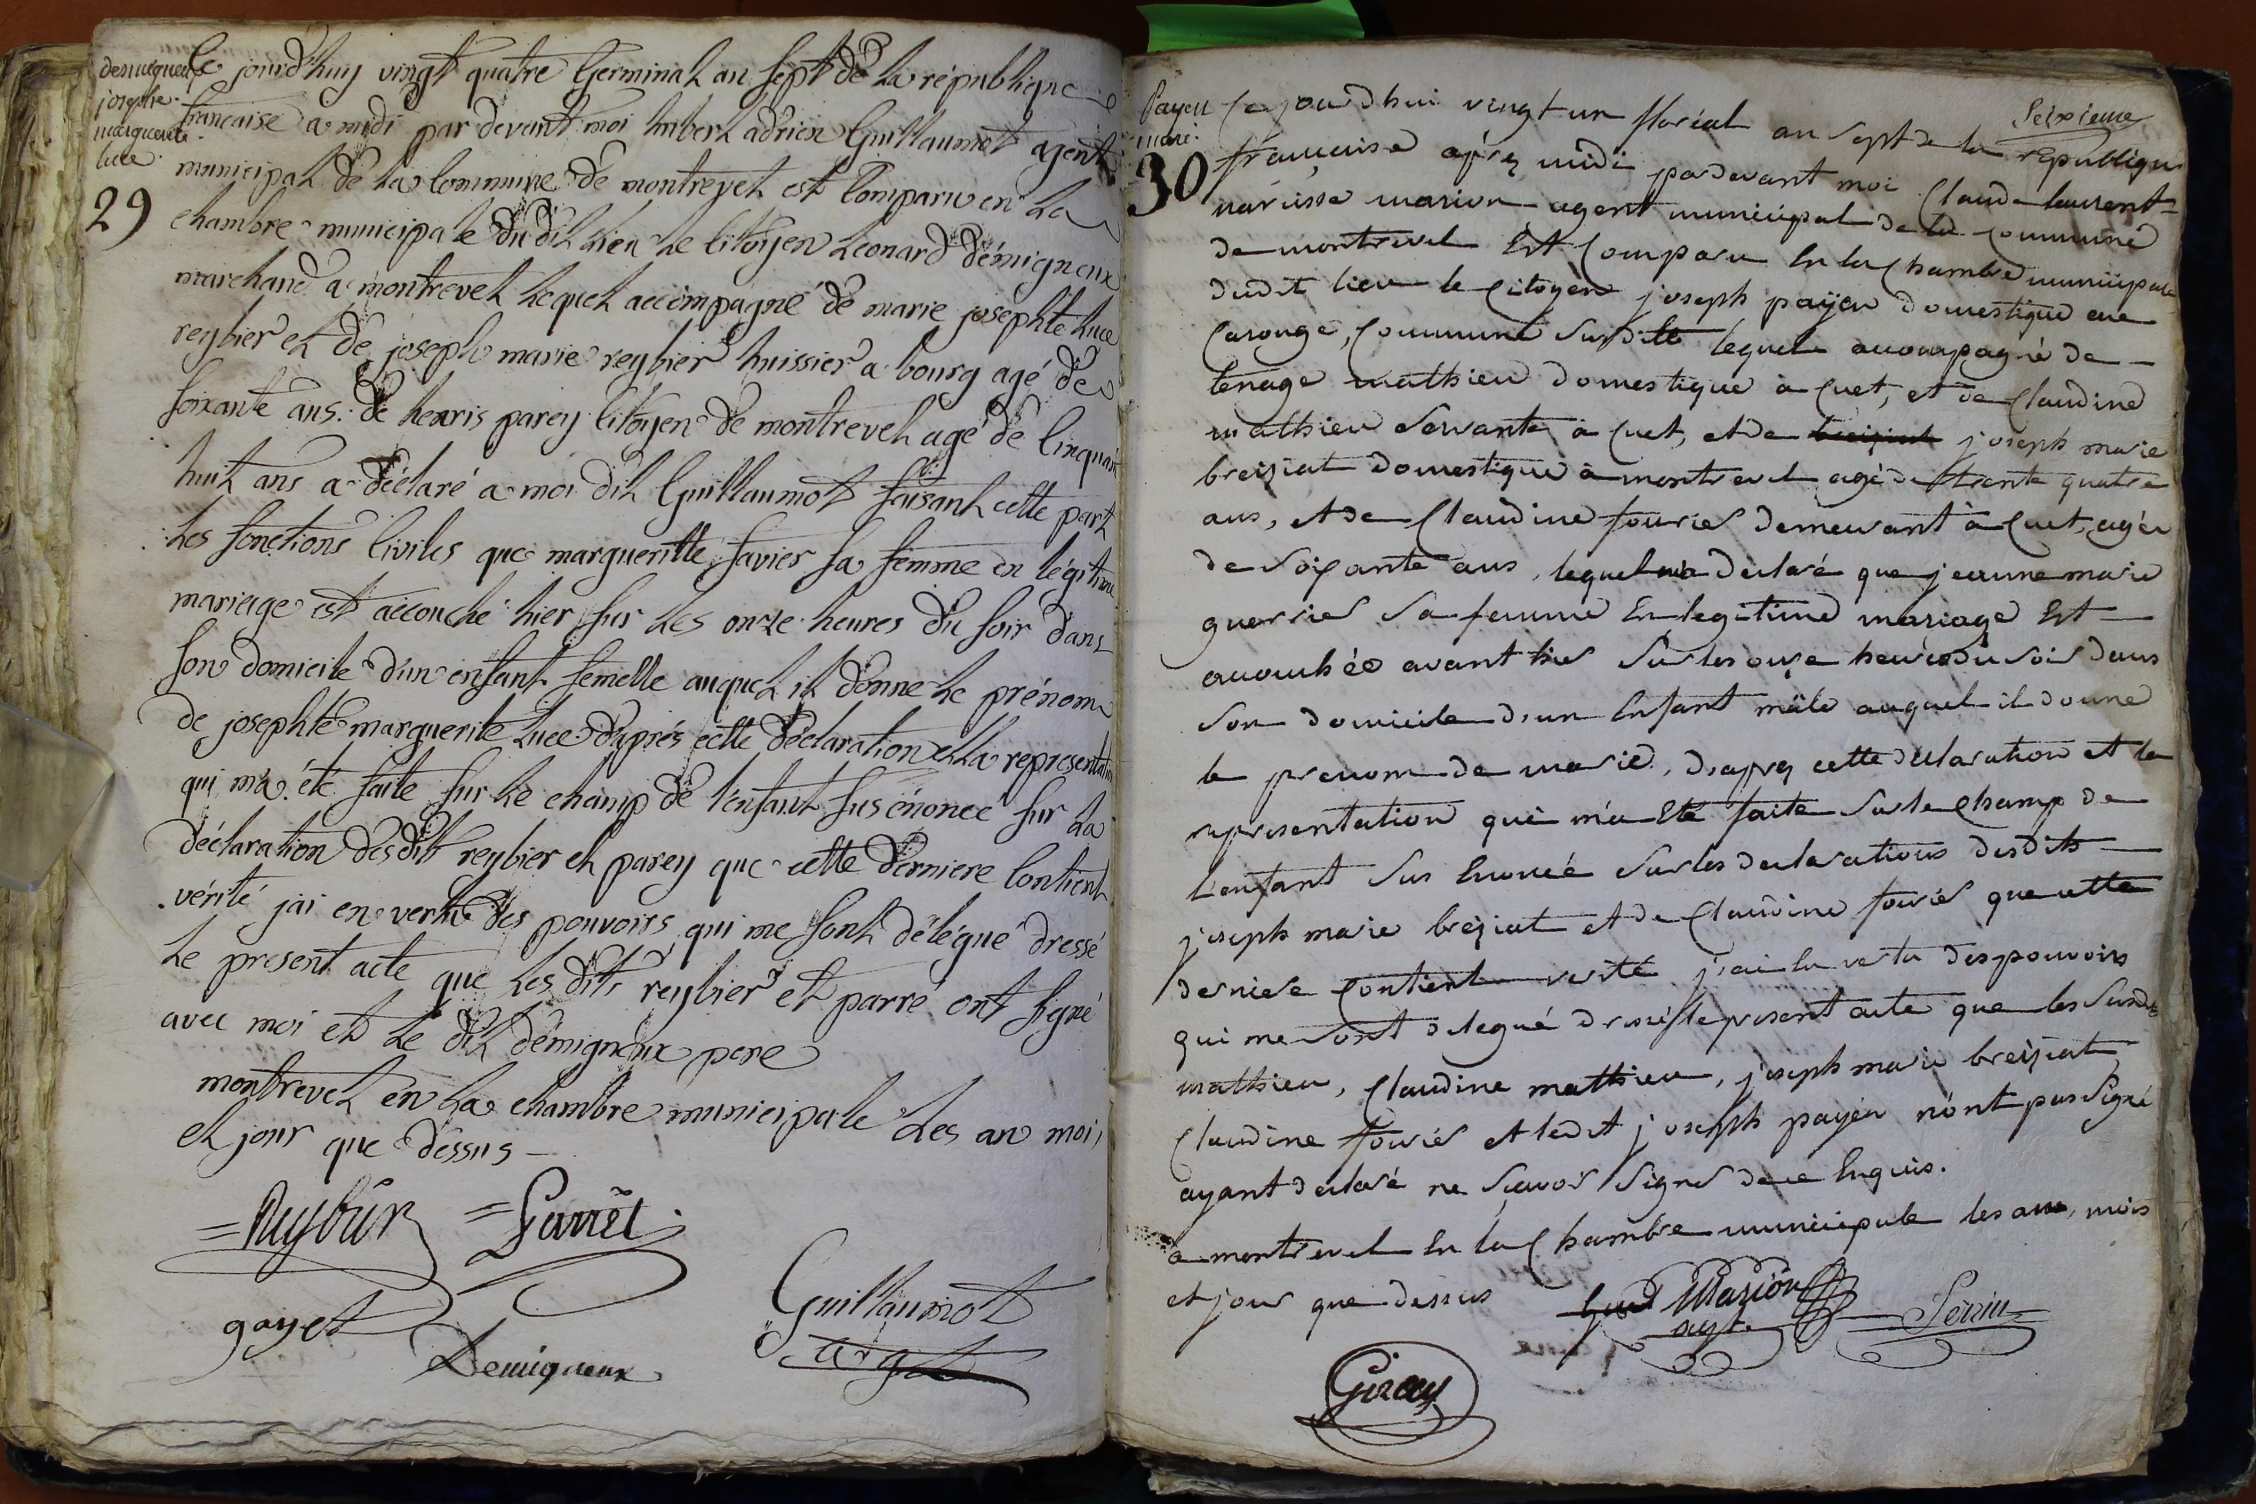 demigneux
josephe
marguerite
luce
29
Ce jourd'huy vingt quatre Germinal an sept de la république
française a midi par devant moi imbert adrien Guillaumot agent
municipal de la Commune de montrevel est Comparu en la
chambre municipale du dit lieu le Citoyen Leonard démigneux
marchand a montrevel lequel accompagné de marie josephte luce
reybier et de joseph marie reybier huissier a bourg agé de
soixante ans. de henris parey Citoyen de montrevel agé de Cinquante
huit ans a déclaré a moi dit Guillaumot faisant cette part
les fonctions Civiles que margueritte favier sa femme en légitime
mariage est accouché hier sur les onze heures du soir dans
son domicile d'un enfant femelle auquel il donne le prénom
de josephte marguerite luce d'après cette déclaration et la representation
qui m'a été faite sur le champ de l'enfant sus énoncé sur la
déclaration desdits reybier et parey que cette derniere Contient
vérité j'ai en vertu des pouvoirs qui me sont délégué dressé
le present acte que les dits reybier et parré ont signé
avec moi et le dit démigneux pere
montrevel en la chambre municipale les an mois
et jour que dessus
Reybier
Parrêt
gayet
Demigneux
Guillaumot
agt
Seixieme
Payen
marie
30
Ce jourdhui vingt un floréal an sept de la republique
française après midi pardevant moi Claude laurent
narcisse marion agent municipal de la Commune
de montrevel Est Comparu En la Chambre municipale
dudit lieu le Citoyen joseph payen domestique en
Carouge, Commune susdite lequel accompagné de
lenage mathieu domestique à Cuet, et de Claudine
mathieu servante à Cuet, et de joseph marie
breiziat domestique à montrevel agé de trente quatre
ans, et de Claudine fourier demeurant à Cuet, agée
de soixante ans, lequel m'a declaré que jeanne marie
guerrier sa femme En legitime mariage Est
accouchée avant hier sur les onze heures du soir dans
son domicile d'un Enfant mâle auquel il donne
le prenom de marie, d'après cette declaration et la
representation qui m'a Eté faite sur le Champ de
L'enfant sus Enoncé sur les declarations desdits
joseph marie breziat et de Claudine fourier que cette
derniere Contient verité j'ai En vertu des pouvoirs
qui me sont delegué dressé le present acte que les susdits
mathieu, Claudine mathieu, joseph marie breiziat
Claudine fourier et ledit joseph payen n'ont pas signé
ayant declaré ne scavoir signer de ce Enquis.
a montrevel En la Chambre municipale les an, mois
et jour que dessus
Marion
agt.
Perrin